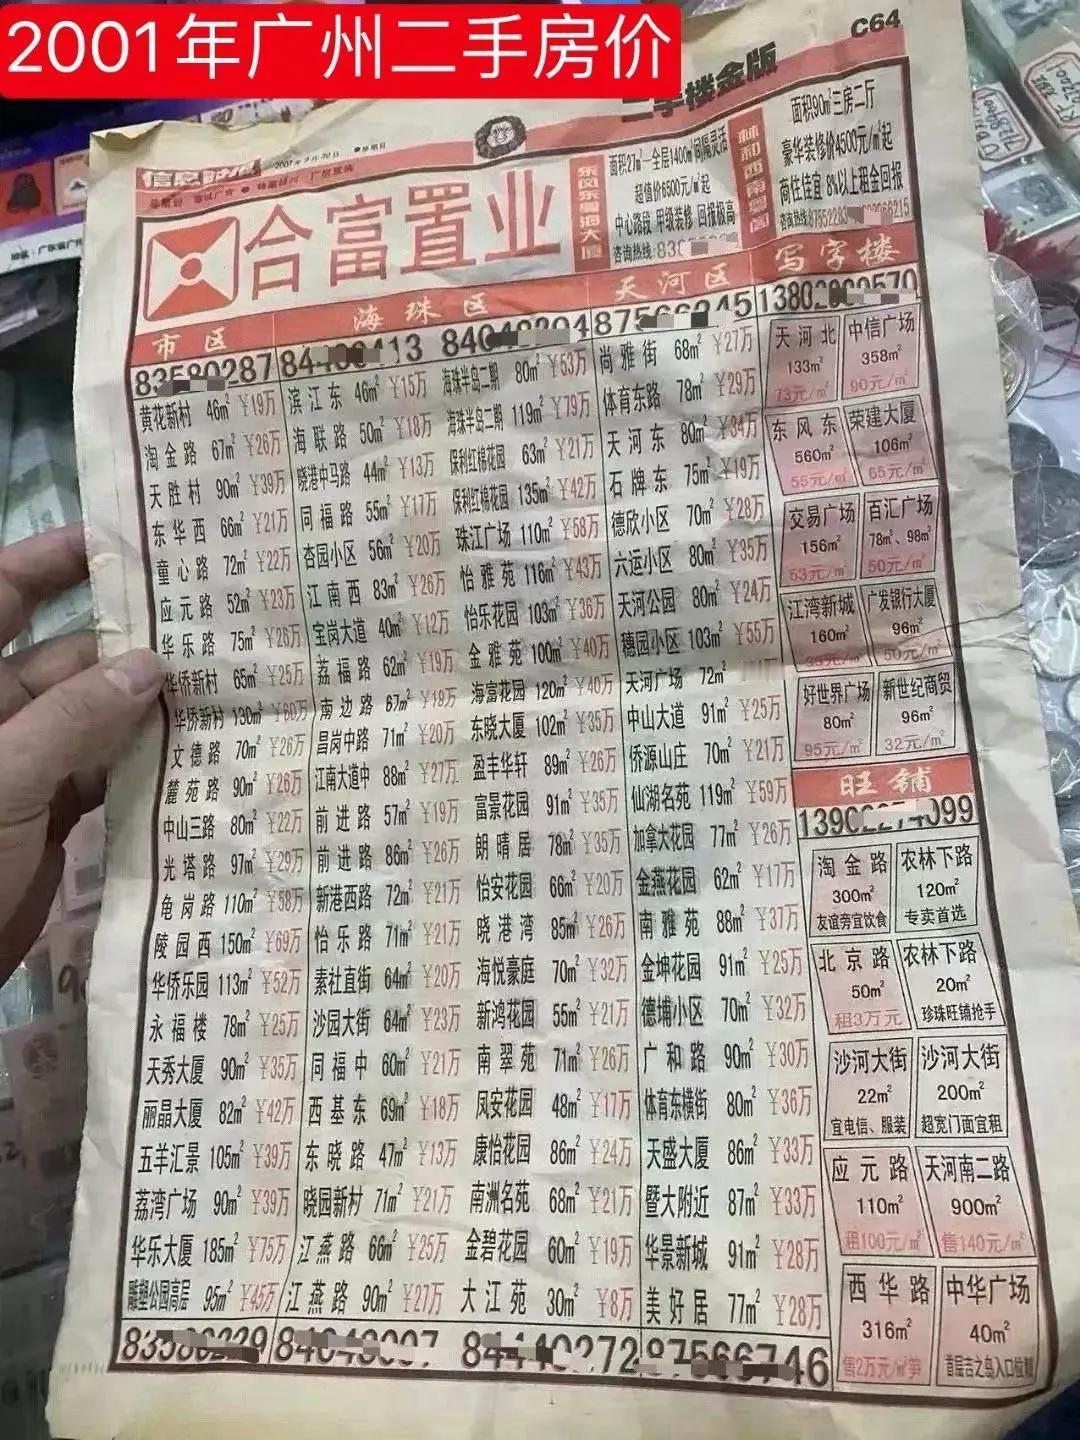 2001年广州二手房价
C64
二手楼金版
合富置业
东风东粤海大厦
面积27㎡一全层1400㎡间隔灵活
超值价6500元/㎡起
中心路段 甲级装修 回报极高
咨询热线:83
林和西南粤阁
面积90㎡三房二厅
豪华装修价4500元/㎡起
商住佳宜 8%以上租金回报
市区
海珠区
天河区
写字楼
黄花新村 46㎡ ¥19万
淘金路 67㎡ ¥26万
天胜村 90㎡ ¥39万
东华西 66㎡ ¥21万
童心路 72㎡ ¥22万
应元路 52㎡ ¥23万
华乐路 75㎡ ¥26万
华侨新村 65㎡ ¥25万
华侨新村 130㎡ ¥60万
文德路 70㎡ ¥26万
麓苑路 90㎡ ¥26万
中山三路 80㎡ ¥22万
光塔路 97㎡ ¥29万
龟岗路 110㎡ ¥58万
陵园西 150㎡ ¥69万
华侨乐园 113㎡ ¥52万
永福楼 78㎡ ¥25万
天秀大厦 90㎡ ¥35万
丽晶大厦 82㎡ ¥42万
五羊汇景 105㎡ ¥39万
荔湾广场 90㎡ ¥39万
华乐大厦 185㎡ ¥75万
雕塑公园高层 95㎡ ¥45万
滨江东 46㎡ ¥15万
海联路 50㎡ ¥18万
晓港中马路 44㎡ ¥13万
同福路 55㎡ ¥17万
杏园小区 56㎡ ¥20万
江南西 83㎡ ¥26万
宝岗大道 40㎡ ¥12万
荔福路 62㎡ ¥19万
南边路 67㎡ ¥18万
昌岗中路 71㎡ ¥20万
江南大道中 88㎡ ¥27万
前进路 57㎡ ¥19万
前进路 86㎡ ¥26万
新港西路 72㎡ ¥21万
怡乐路 71㎡ ¥21万
素社直街 64㎡ ¥20万
沙园大街 64㎡ ¥23万
同福中 60㎡ ¥21万
西基东 69㎡ ¥18万
东晓路 47㎡ ¥13万
晓园新村 71㎡ ¥21万
江燕路 66㎡ ¥25万
江燕路 90㎡ ¥27万
海珠半岛二期 80㎡ ¥53万
海珠半岛二期 119㎡ ¥79万
保利红棉花园 63㎡ ¥21万
保利红棉花园 135㎡ ¥42万
珠江广场 110㎡ ¥58万
怡雅苑 116㎡ ¥43万
怡乐花园 103㎡ ¥36万
金雅苑 100㎡ ¥40万
海富花园 120㎡ ¥40万
东晓大厦 102㎡ ¥35万
盈丰华轩 89㎡ ¥26万
富景花园 91㎡ ¥35万
朗晴居 78㎡ ¥35万
怡安花园 66㎡ ¥20万
晓港湾 85㎡ ¥26万
海悦豪庭 70㎡ ¥32万
新鸿花园 55㎡ ¥21万
南翠苑 71㎡ ¥26万
凤安花园 48㎡ ¥17万
康怡花园 86㎡ ¥24万
南洲名苑 68㎡ ¥21万
金碧花园 60㎡ ¥19万
大江苑 30㎡ ¥8万
尚雅街 68㎡ ¥27万
体育东路 78㎡ ¥29万
天河东 80㎡ ¥34万
石牌东 75㎡ ¥19万
德欣小区 70㎡ ¥28万
六运小区 80㎡ ¥35万
天河公园 80㎡ ¥24万
穗园小区 103㎡ ¥55万
天河广场 72㎡
中山大道 91㎡ ¥25万
侨源山庄 70㎡ ¥21万
仙湖名苑 119㎡ ¥59万
加拿大花园 77㎡ ¥26万
金燕花园 62㎡ ¥17万
南雅苑 88㎡ ¥37万
金坤花园 91㎡ ¥25万
德埔小区 70㎡ ¥32万
广和路 90㎡ ¥30万
体育东横街 80㎡ ¥36万
天盛大厦 86㎡ ¥33万
暨大附近 87㎡ ¥33万
华景新城 91㎡ ¥28万
美好居 77㎡ ¥28万
天河北
133㎡
73元/㎡
中信广场
358㎡
90元/㎡
东风东
560㎡
55元/㎡
荣建大厦
106㎡
65元/㎡
交易广场
156㎡
53元/㎡
百汇广场
78㎡、98㎡
50元/㎡
江湾新城
160㎡
广发银行大厦
96㎡
50元/㎡
好世界广场
80㎡
95元/㎡
新世纪商贸
96㎡
32元/㎡
旺铺
淘金路
300㎡
友谊旁宜饮食
农林下路
120㎡
专卖首选
北京路
50㎡
租3万元
农林下路
20㎡
珍珠旺铺抢手
沙河大街
22㎡
宜电信、服装
沙河大街
200㎡
超宽门面宜租
应元路
110㎡
租100元/㎡
天河南二路
900㎡
售140元/㎡
西华路
316㎡
售2万元/㎡笋
中华广场
40㎡
首层吉之岛入口位置